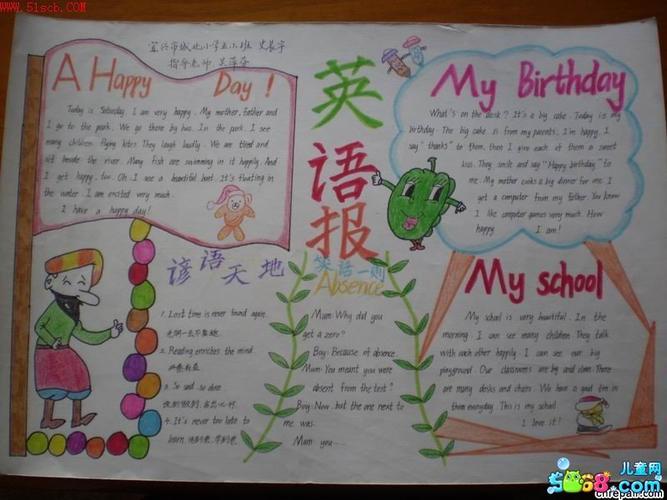 51scb.com
宜兴市城北小学五
指导老师
A Happy Day!
Today is Saturday. I am very happy. My mother, father and
I go to the park. We go there by bus. In the park. I see
many children flying kites. They laugh loudly. We are tired and
sit beside the river. Many fish are swimming in it happily. And
I get happy, too. Oh. I see a beautiful boat. It's floating in
the water. I am excited very much.
I have a happy day!
英
语
报
My Birthday
What's on the desk? It's a big cake. Today is my
birthday. The big cake is from my parents. I'm happy. I
say "thanks" to them, then I give each of them a sweet
kiss. They smile and say "Happy birthday" to
me. My mother cooks a big dinner for me. I
get a computer from my father. You know
I like computer games very much. How
happy I am!
谚语天地
1. Lost time is never found again.
2. Reading enriches the mind
开卷有益
3. So said so done
说到做到
4. It's never too late to
learn.
笑话一则
Absence
Mum: Why did you
get a zero?
Boy: Because of absence.
Mum: You meant you were
absent from the test?
Boy: Now, but the one next to
me was.
Mum you......
My school
My school is very beautiful. In the
morning. I can see many children. They talk
with each other happily. I can see our big
playground. Our classrooms are big and clean. There
are many desks and chairs. We have a good time in
them everyday. This is my school.
I love it!
儿童网
5068.com
cnrepair.com